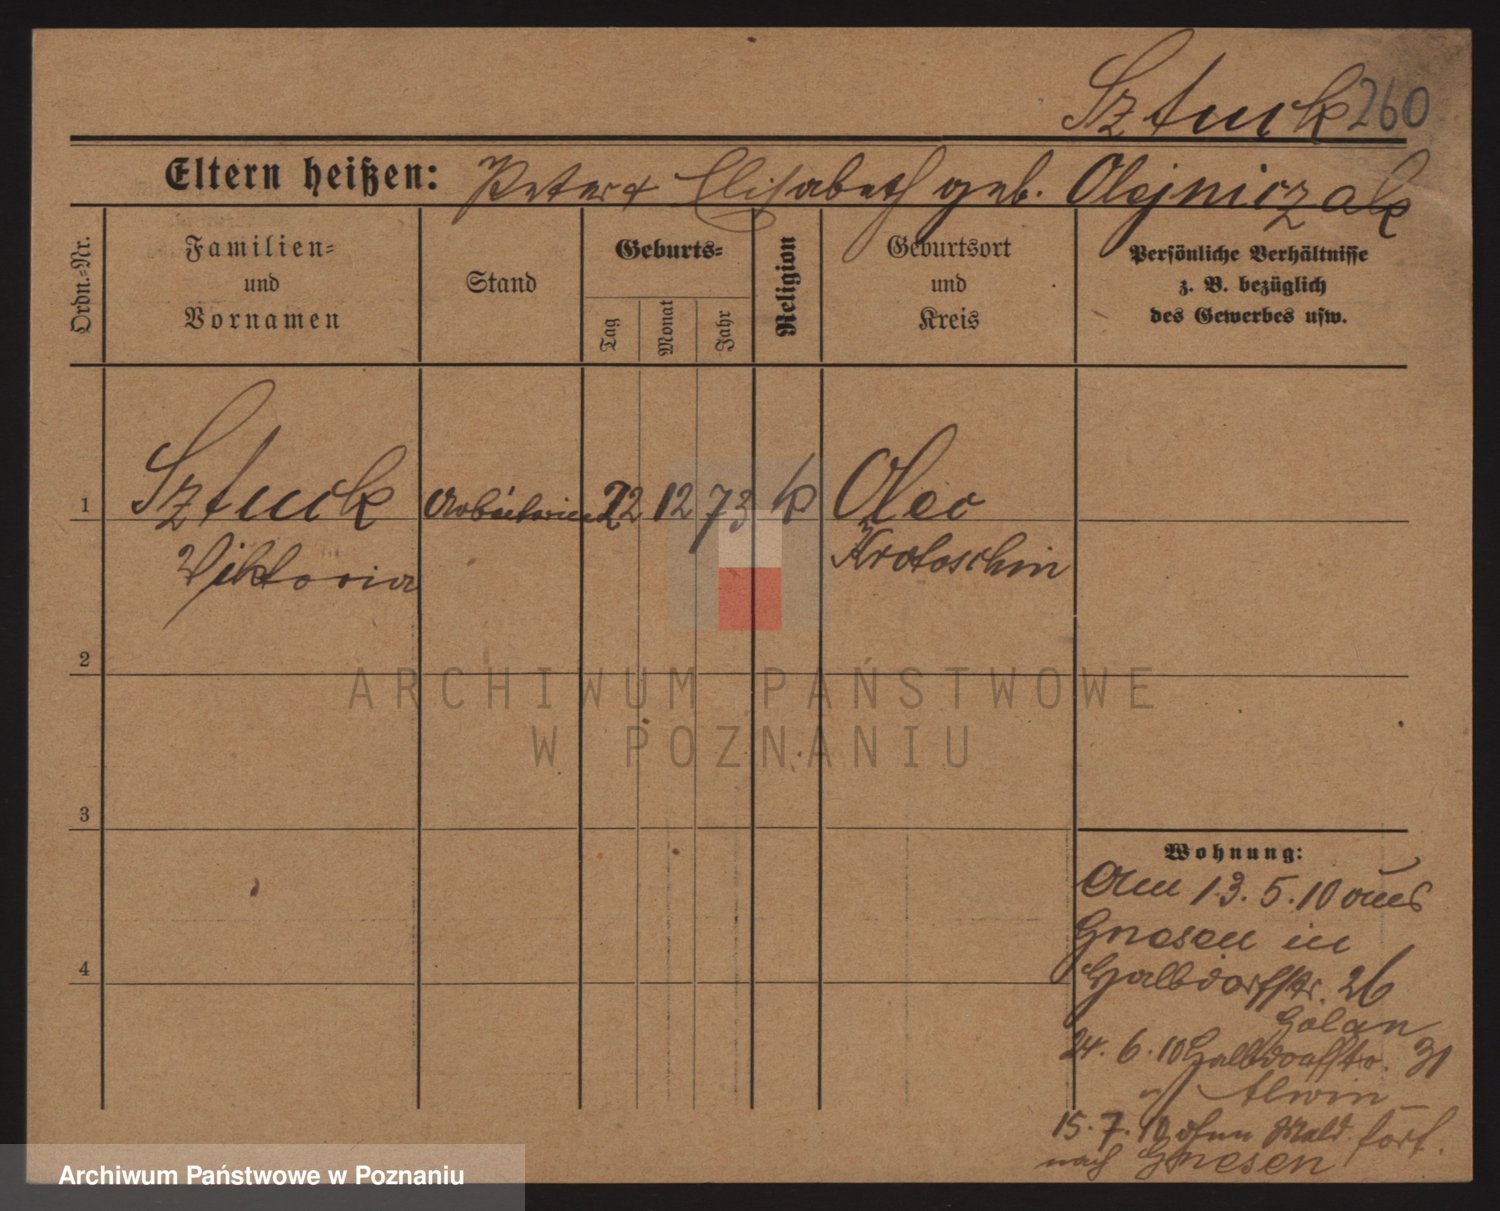 Sztuck 260
Eltern heißen: Peter & Elisabeth geb. Olejniczak
Ordn.-Nr.
Familien-
und
Vornamen
Stand
Geburts-
Tag
Monat
Jahr
Religion
Geburtsort
und
Kreis
Persönliche Verhältnisse
z. B. bezüglich
des Gewerbes usw.
1
Sztuck Arbeiterin 22 12 73 k Oleo
Viktoria Krotoschin
2
ARCHIWUM PAŃSTWOWE
W POZNANIU
3
Wohnung:
Am 13.5.10 aus
Gnesen in
4
Halbdorfstr. 26
Golan
24.6.10 Halbdorfstr. 31
Alwin
15.7.10 ohne Meld. fort.
nach Gnesen
Archiwum Państwowe w Poznaniu